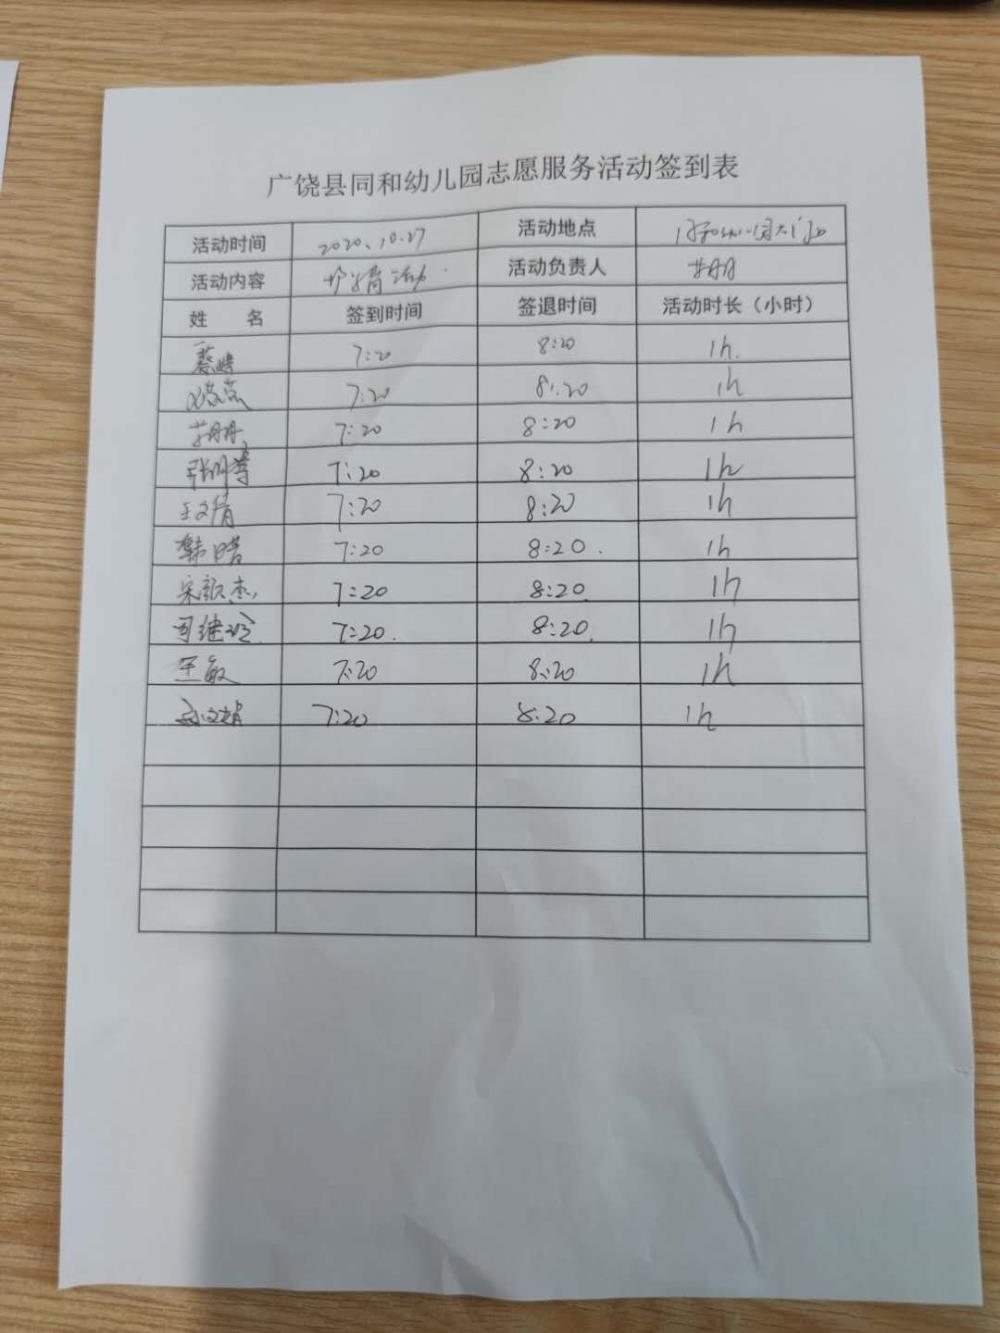 广饶县同和幼儿园志愿服务活动签到表
活动时间 2020.10.27 活动地点 同和幼儿园大门口
活动内容 护学岗活动 活动负责人
姓 名 签到时间 签退时间 活动时长（小时）
7:20 8:20 1h.
7:20 8:20 1h
7:20 8:20 1h
7:20 8:20 1h
王文倩 7:20 8:20 1h
韩晴 7:20 8:20. 1h
宋颜杰 7:20 8:20. 1h
司继玲 7:20. 8:20. 1h
王敏 7:20 8:20 1h
孙文娟 7:20 8:20 1h